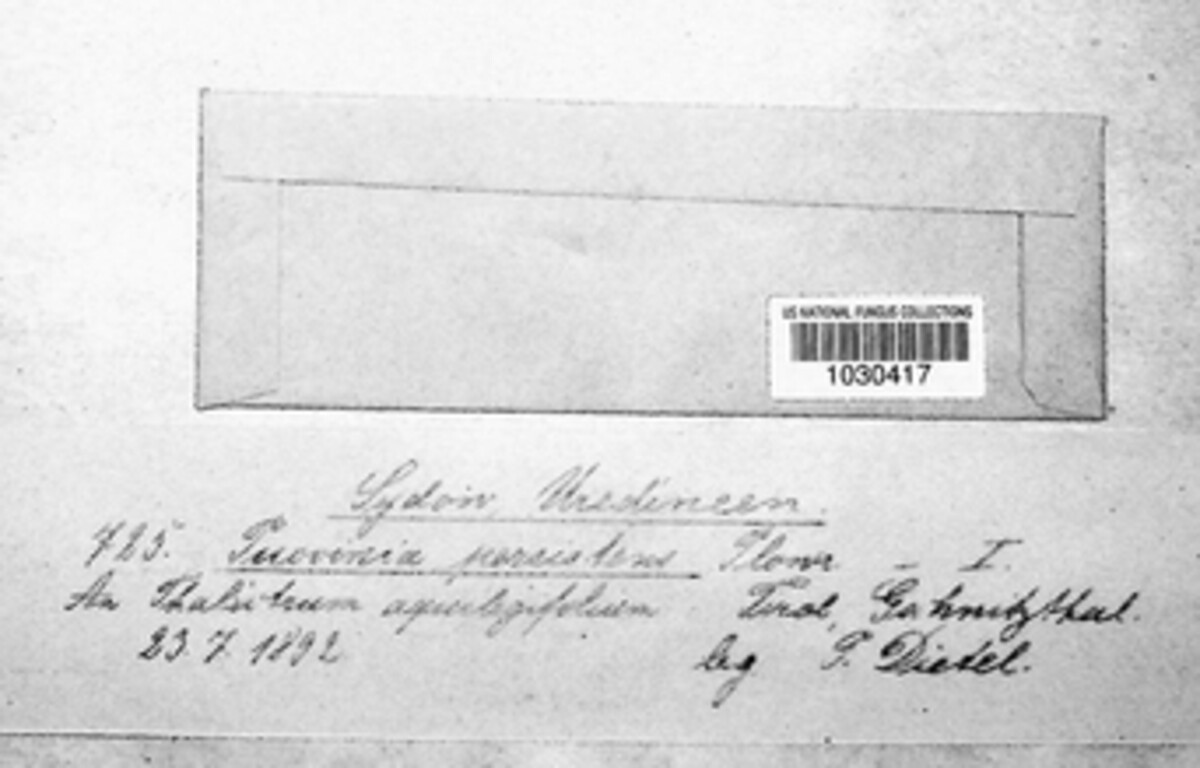 US NATIONAL FUNGUS COLLECTIONS
1030417
Sydow, Uredineen.
725. Puccinia persistens Plowr – I.
An Thalictrum aquilegifolium Tirol, Gschnitzthal.
23. 7. 1892 leg P. Dietel.